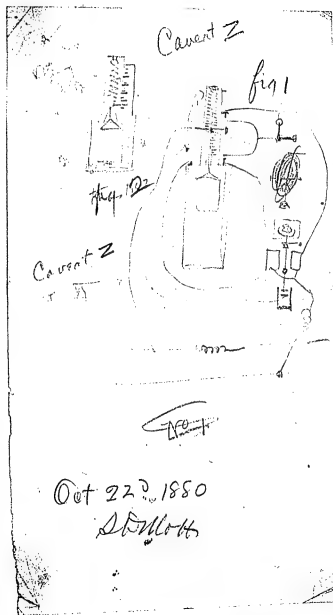 Caveat Z
fig 1
fig. 2
Caveat Z
Oct 22d 1880
S. D. Mott